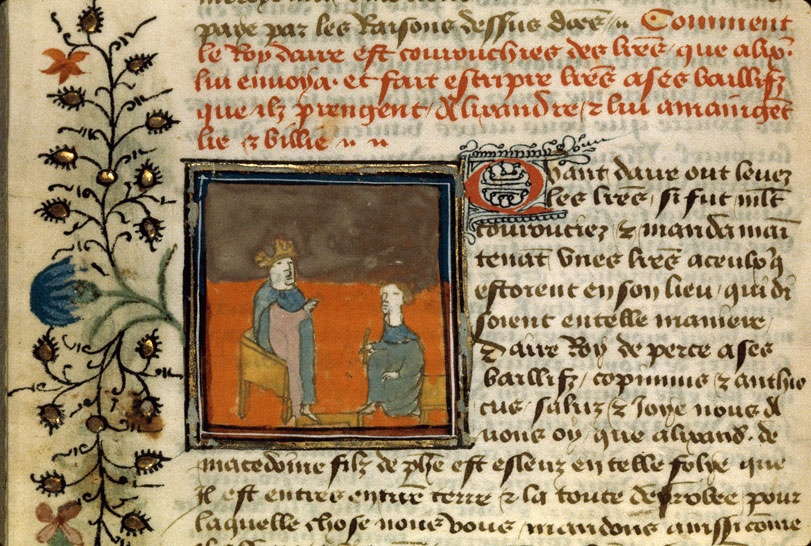 paye par les Raisons dessus dces~ " Comment
le Roy daire est courouchies des lres / que alixr.
lui envoya · et fait escripre lres a ses baillifz
que ilz prengent / Alixandre / z lui amaingēt
lie z billie " "
Quant daire out leuez
les lres / si fut mlt
courouciez / z manda main
tenāt unes lres a ceulx q̄
estoient en son lieu / qui di
soient en telle maniere /
Daire Roy de perce a ses
baillifz / copimus z anthio
cus / saluz z Joye nous a
uons oy que alixand. de
macedoine filz de phe est esleuz en telle folye que
Il est entres en nr̄e terre z la toute desrobee pour
laquelle chose nous vous mandons aussi cōme